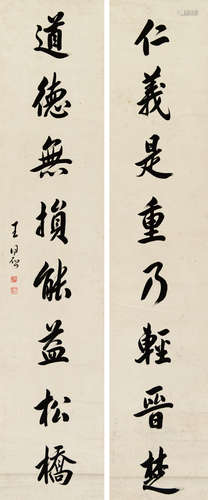 仁義是重乃輕晉楚
道德無損能益松橋